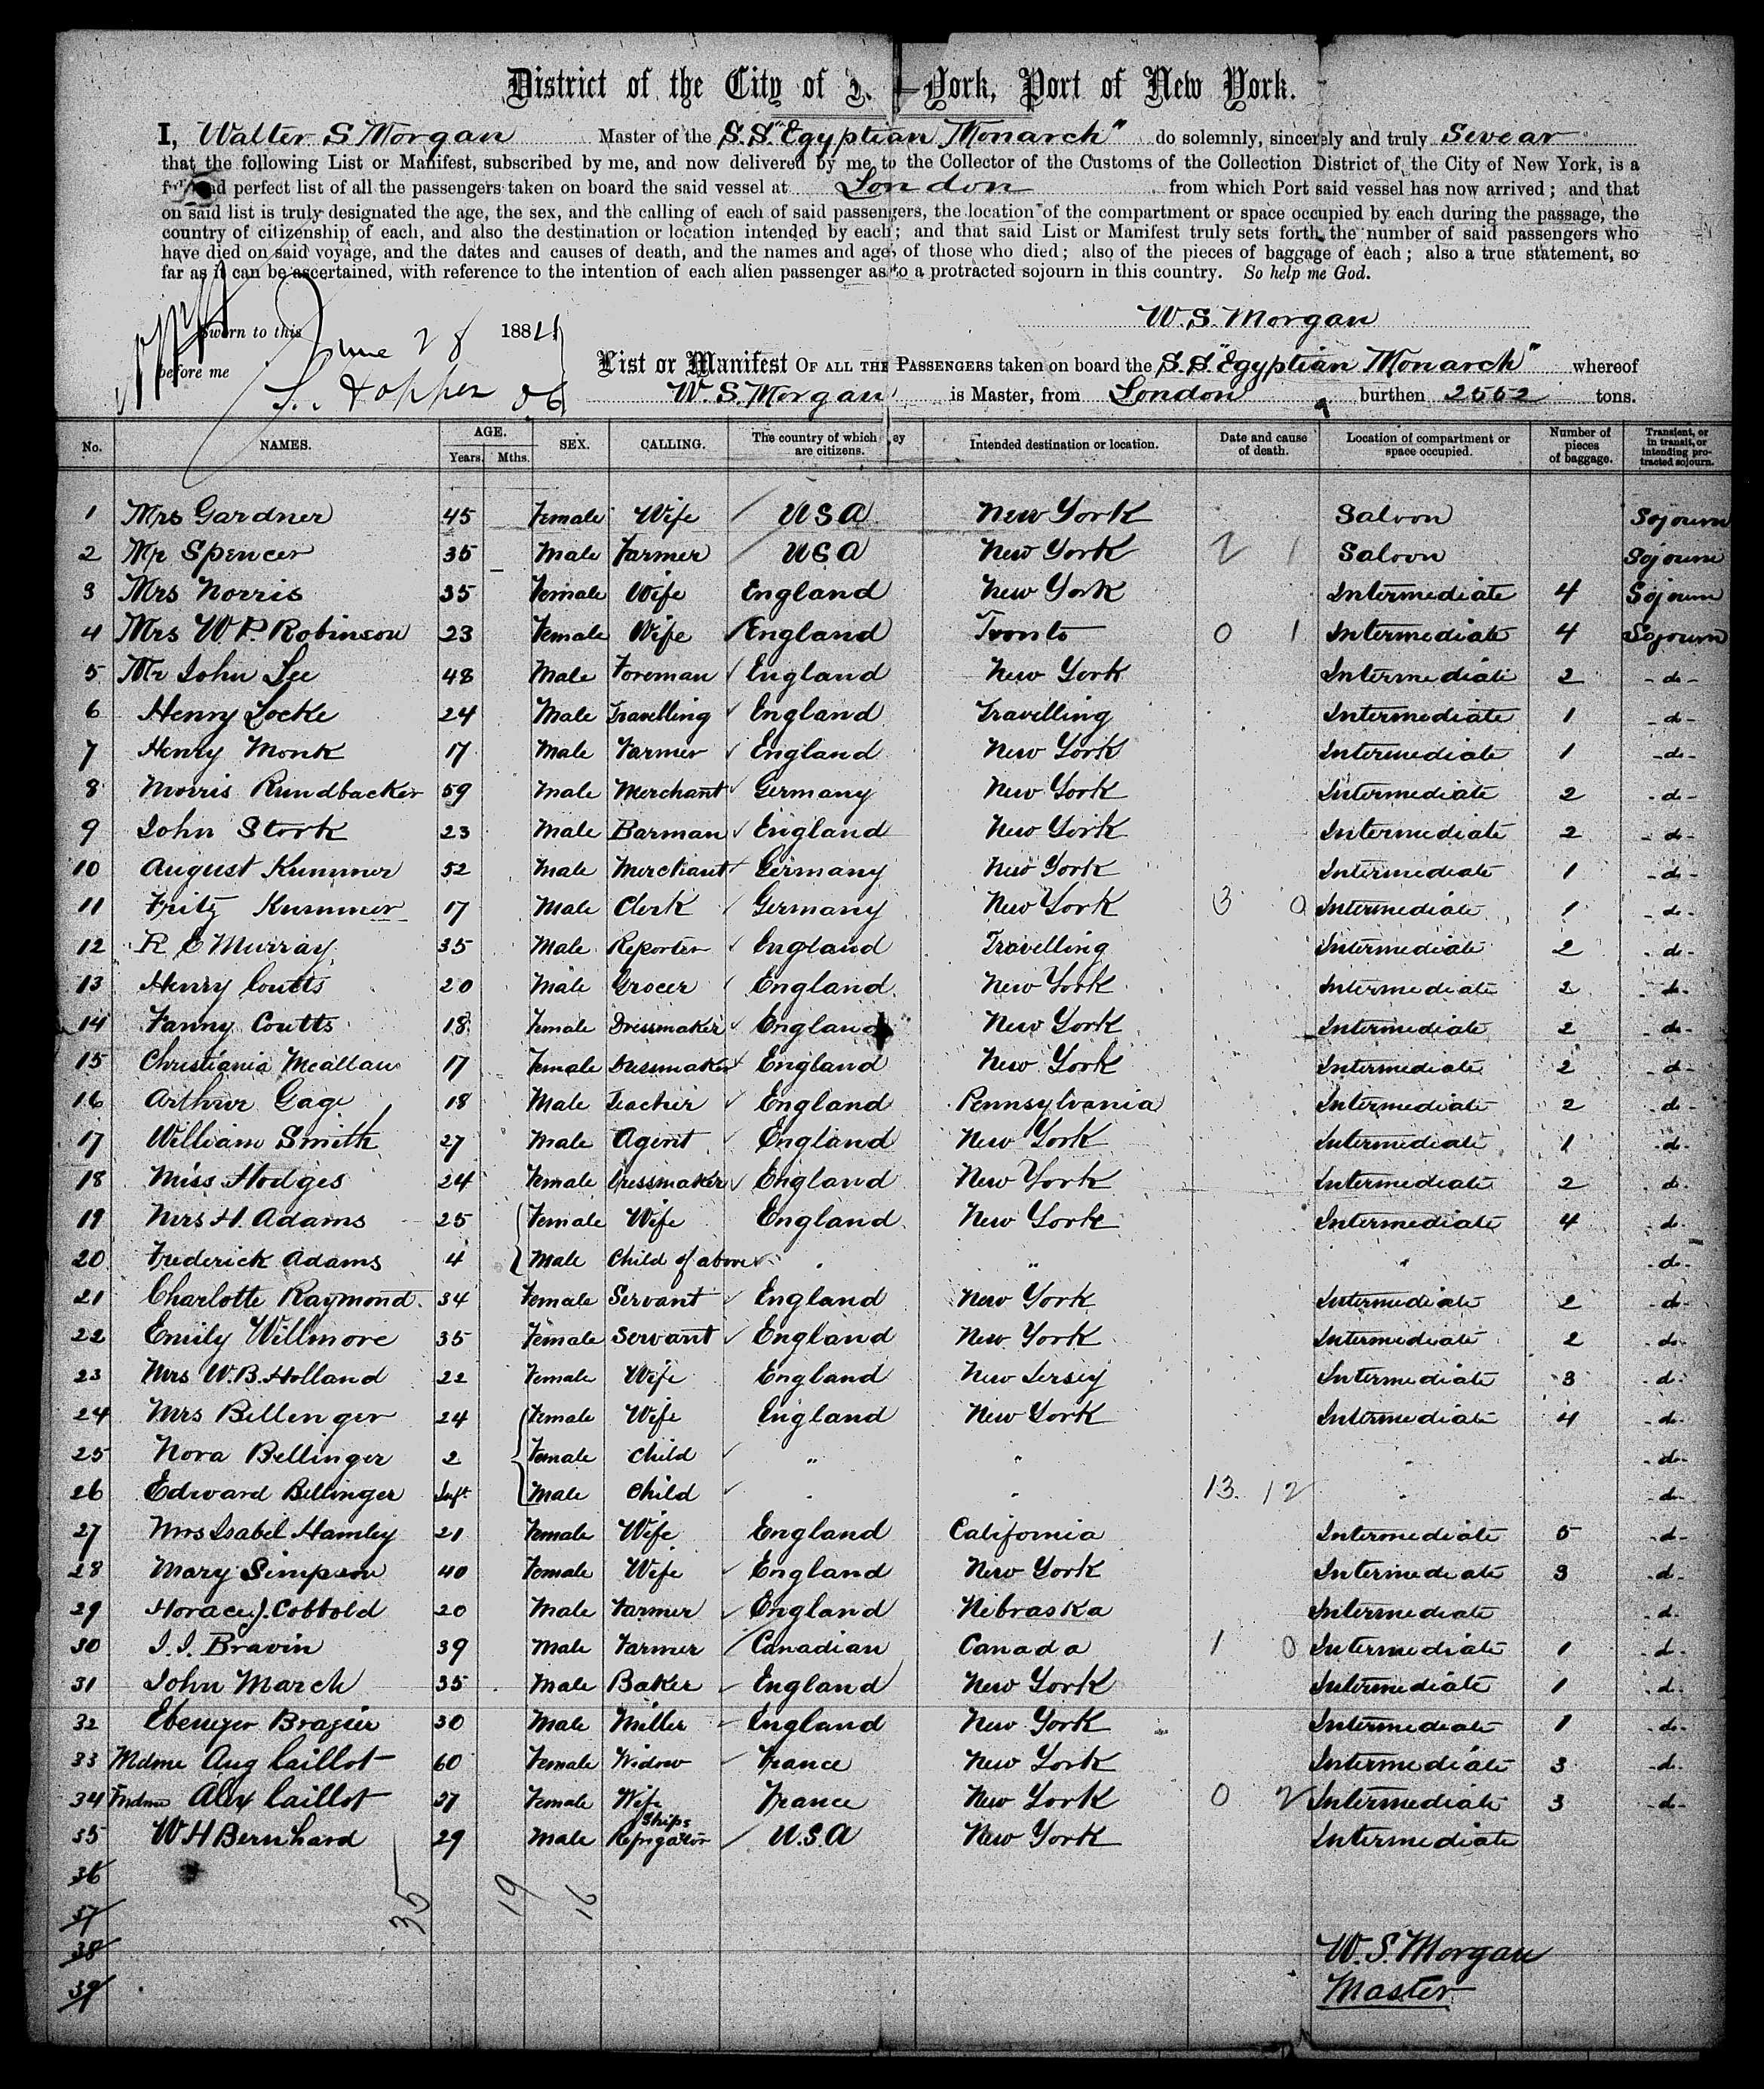 District of the City of York, Port of New York.
I, Walter S Morgan Master of the S.S. "Egyptian Monarch" do solemnly, sincerely and truly Swear
that the following List or Manifest, subscribed by me, and now delivered by me to the Collector of the Customs of the Collection District of the City of New York, is a
and perfect list of all the passengers taken on board the said vessel at London from which Port said vessel has now arrived; and that
on said list is truly designated the age, the sex, and the calling of each of said passengers, the location of the compartment or space occupied by each during the passage, the
country of citizenship of each, and also the destination or location intended by each; and that said List or Manifest truly sets forth the number of said passengers who
have died on said voyage, and the dates and causes of death, and the names and ages of those who died; also of the pieces of baggage of each; also a true statement, so
far as it can be ascertained, with reference to the intention of each alien passenger as to a protracted sojourn in this country. So help me God.
W. S. Morgan
Sworn to this June 28 1884
before me
List or Manifest OF ALL THE PASSENGERS taken on board the S.S. "Egyptian Monarch" whereof
W. S. Morgan is Master, from London burthen 2552 tons.
No. NAMES. AGE. Years. Mths. SEX. CALLING. The country of which they are citizens. Intended destination or location. Date and cause of death. Location of compartment or space occupied. Number of pieces of baggage. Transient, or in transit, or intending protracted sojourn.
1 Mrs Gardner 45 Female Wife USA New York Saloon Sojourn
2 Mr Spencer 35 Male Farmer USA New York 2 1 Saloon Sojourn
3 Mrs Norris 35 Female Wife England New York Intermediate 4 Sojourn
4 Mrs W P. Robinson 23 Female Wife England Tronto 0 1 Intermediate 4 Sojourn
5 Mr John Lee 48 Male Foreman England New York Intermediate 2 - do -
6 Henry Locke 24 Male Travelling England Travelling Intermediate 1 - do -
7 Henry Monk 17 Male Farmer England New York Intermediate 1 - do -
8 Morris Rundbacker 59 Male Merchant Germany New York Intermediate 2 - do -
9 John Stork 23 Male Barman England New York Intermediate 2 - do -
10 August Kummer 52 Male Merchant Germany New York Intermediate 1 - do -
11 Fritz Kummer 17 Male Clerk Germany New York 3 0 Intermediate 1 - do -
12 R E Murray 35 Male Reporter England Travelling Intermediate 2 - do -
13 Henry Coutts 20 Male Grocer England New York Intermediate 2 - do -
14 Fanny Coutts 18 Female Dressmaker England New York Intermediate 2 - do -
15 Christiania McAllan 17 Female Dressmaker England New York Intermediate 2 - do -
16 Arthur Gage 18 Male Teacher England Pennsylvania Intermediate 2 - do -
17 William Smith 27 Male Agent England New York Intermediate 1 - do -
18 Miss Hodges 24 Female Dressmaker England New York Intermediate 2 - do -
19 Mrs H. Adams 25 Female Wife England New York Intermediate 4 - do -
20 Frederick Adams 4 Male Child of above " " " - do -
21 Charlotte Raymond 34 Female Servant England New York Intermediate 2 - do -
22 Emily Willmore 35 Female Servant England New York Intermediate 2 - do -
23 Mrs W. B. Holland 22 Female Wife England New Jersey Intermediate 3 - do -
24 Mrs Bellenger 24 Female Wife England New York Intermediate 4 - do -
25 Nora Bellinger 2 Female Child " " " - do -
26 Edward Bellinger Inft Male Child " " 13 12 " - do -
27 Mrs Isabel Hamley 21 Female Wife England California Intermediate 5 - do -
28 Mary Simpson 40 Female Wife England New York Intermediate 3 - do -
29 Horace J. Cobbold 20 Male Farmer England Nebraska Intermediate - do -
30 I. I. Bravin 39 Male Farmer Canadian Canada 1 0 Intermediate 1 - do -
31 John March 35 Male Baker England New York Intermediate 1 - do -
32 Ebenezer Brazier 30 Male Miller England New York Intermediate 1 - do -
33 Mdme Aug Caillot 60 Female Widow France New York Intermediate 3 - do -
34 Alex Caillot 27 Female Wife France New York 0 2 Intermediate 3 - do -
35 W H Bernhard 29 Male Ships U.S.A New York Intermediate
36
37
38
39
35 19 16
W. S. Morgan
Master